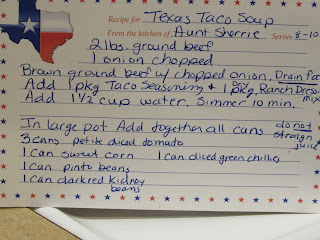 Recipe for: Texas Taco Soup
From the kitchen of Aunt Sherrie Serves 8-10
2 lbs. ground beef
1 onion chopped
Brown ground beef w/ chopped onion, Drain fat
Add 1 pkg Taco Seasoning + 1 pkg DRY Ranch Dress. mix
Add 1 1/2 cup water, Simmer 10 min.
In large pot Add together all cans do not strain juice
3 cans petite diced tomato
1 can sweet corn 1 can diced green chillies
1 can pinto beans
1 can dark red kidney beans